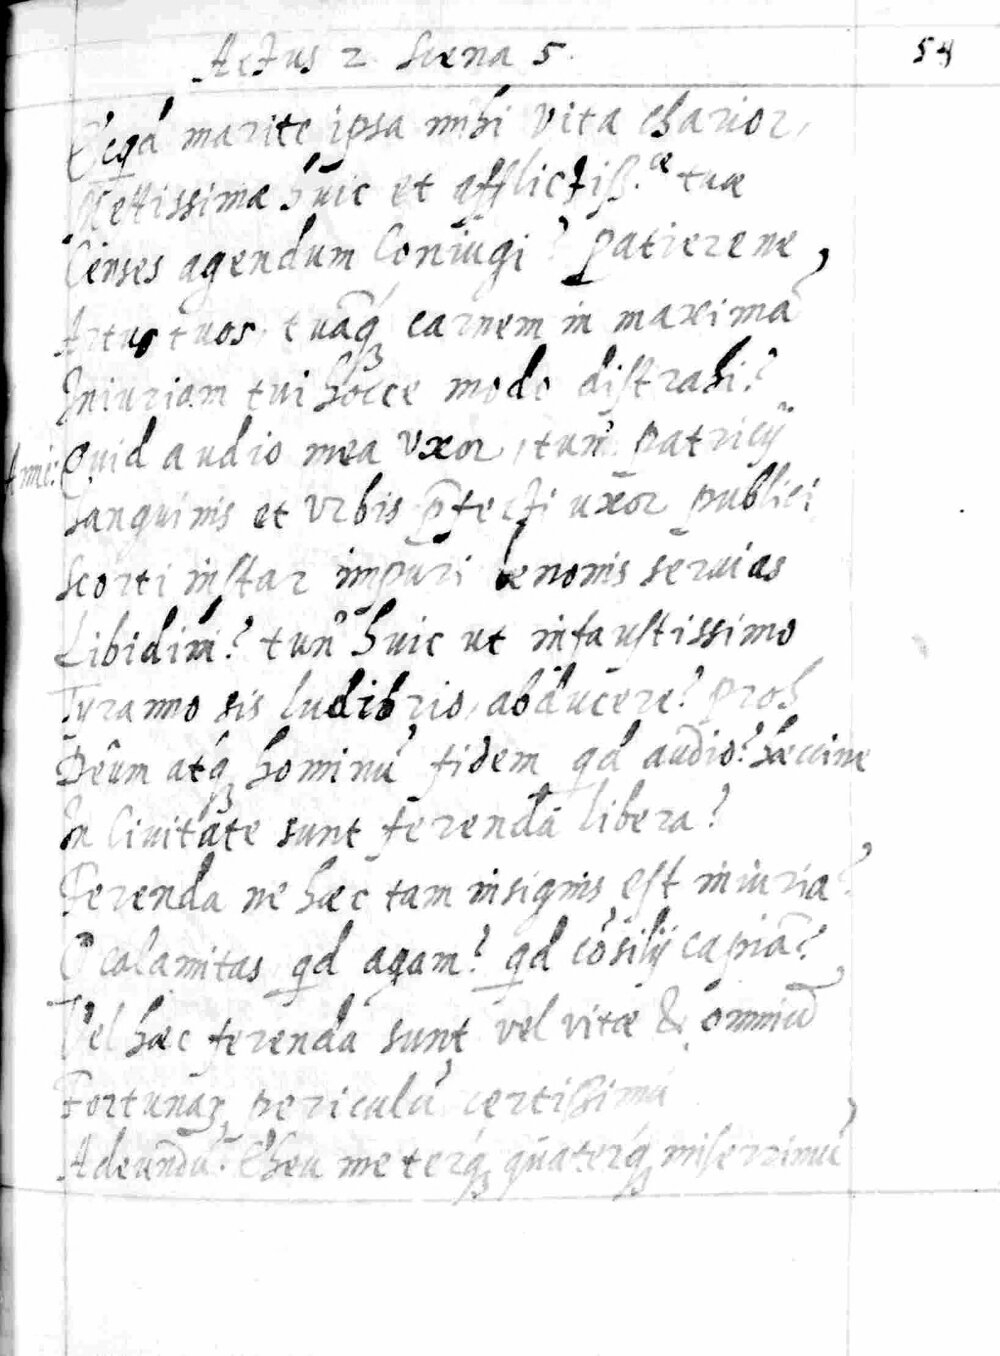 Actus 2 Scena 5. 54
Ecqd marite ipsa mihi vita charior,
Mestissimæ huic et afflictiss.æ tuæ
Censes agendum Coniugi? patierene,
Artus tuos, tuāq; carnem in maximā
Iniuriam tui hocce modo distrahi?
Quid audio mea uxor, tun' patricij
Sanguinis et urbis p̄fecti uxor publici
Scorti instar impuri lenonis seruias
Libidini? tun' huic ut infaustissimo
Tyranno sis ludibrio, abducere? proh
Deûm atq; hominū fidem qd audio? hæccine
In Ciuitate sunt ferenda libera?
Ferenda ne hæc tam insignis est iniuria?
O calamitas qd agam? qd cōsilij capiā?
Vel hæc ferenda sunt vel vitæ & omniū
Fortunaꝝ periculū certissimū
Adeundū? Eheu me terq; quaterq; miserrimū